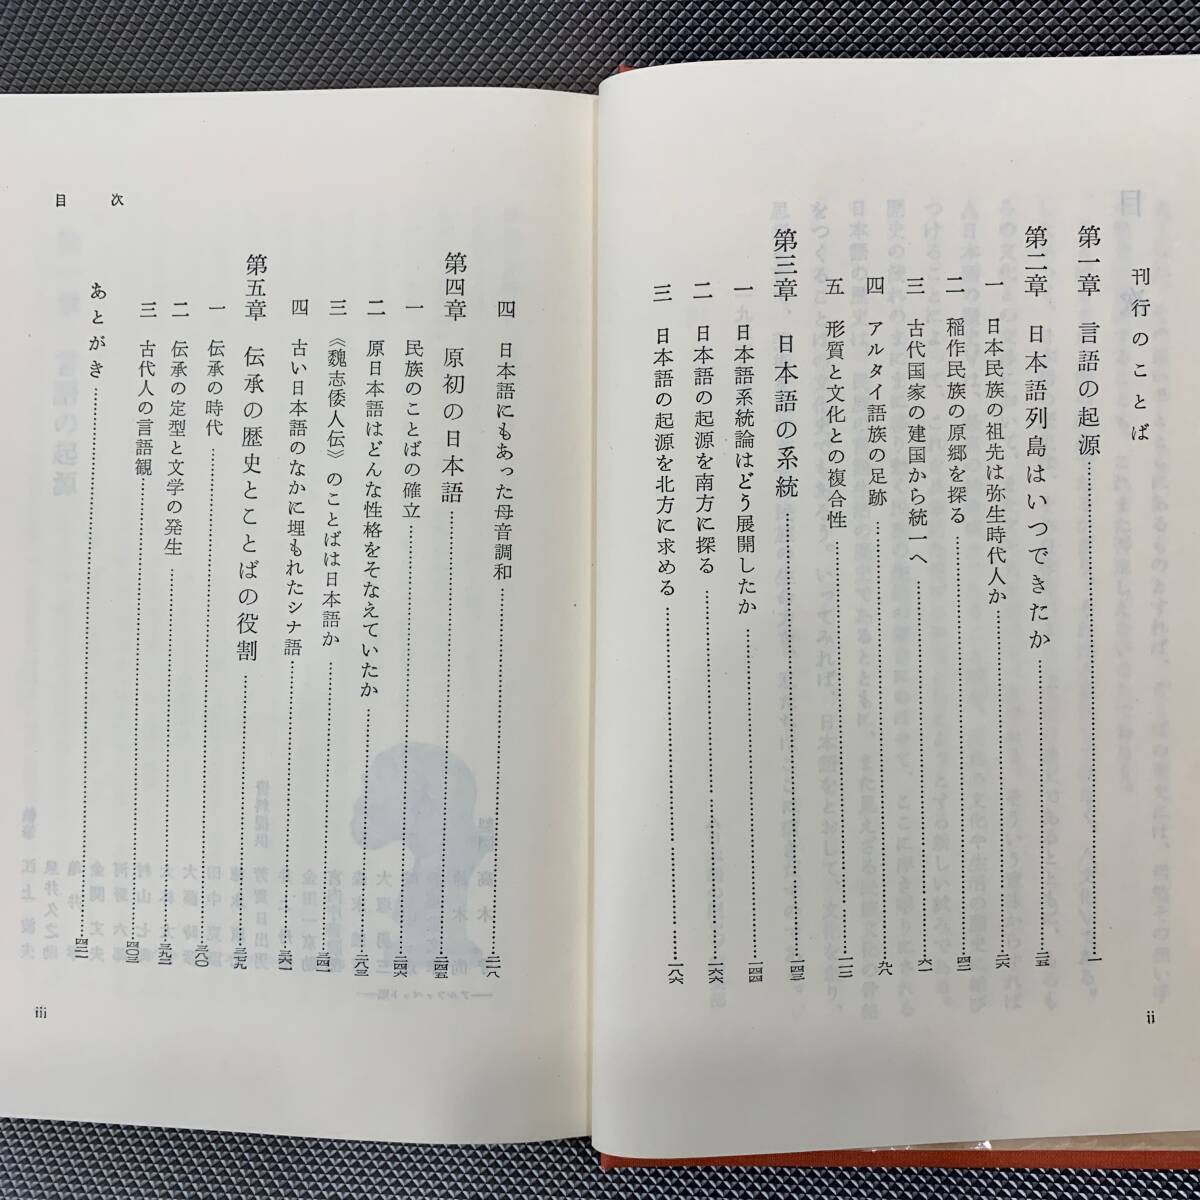 刊行のことば
第一章 言語の起源……一
第二章 日本語列島はいつできたか……二五
一 日本民族の祖先は弥生時代人か……二六
二 稲作民族の原郷を探る……四二
三 古代国家の建国から統一へ……六一
四 アルタイ語族の足跡……九六
五 形質と文化との複合性……一一三
第三章 日本語の系統……一四三
一 日本語系統論はどう展開したか……一四四
二 日本語の起源を南方に探る……一六六
三 日本語の起源を北方に求める……一八六
ii
目次
四 日本語にもあった母音調和……二一八
第四章 原初の日本語……二四五
一 民族のことばの確立……二四六
二 原日本語はどんな性格をそなえていたか……二八三
三 《魏志倭人伝》のことばは日本語か……三四一
四 古い日本語のなかに埋もれたシナ語……三六一
第五章 伝承の歴史とことばの役割……三七九
一 伝承の時代……三八〇
二 伝承の定型と文学の発生……三九二
三 古代人の言語観……四〇三
あとがき……四二一
iii